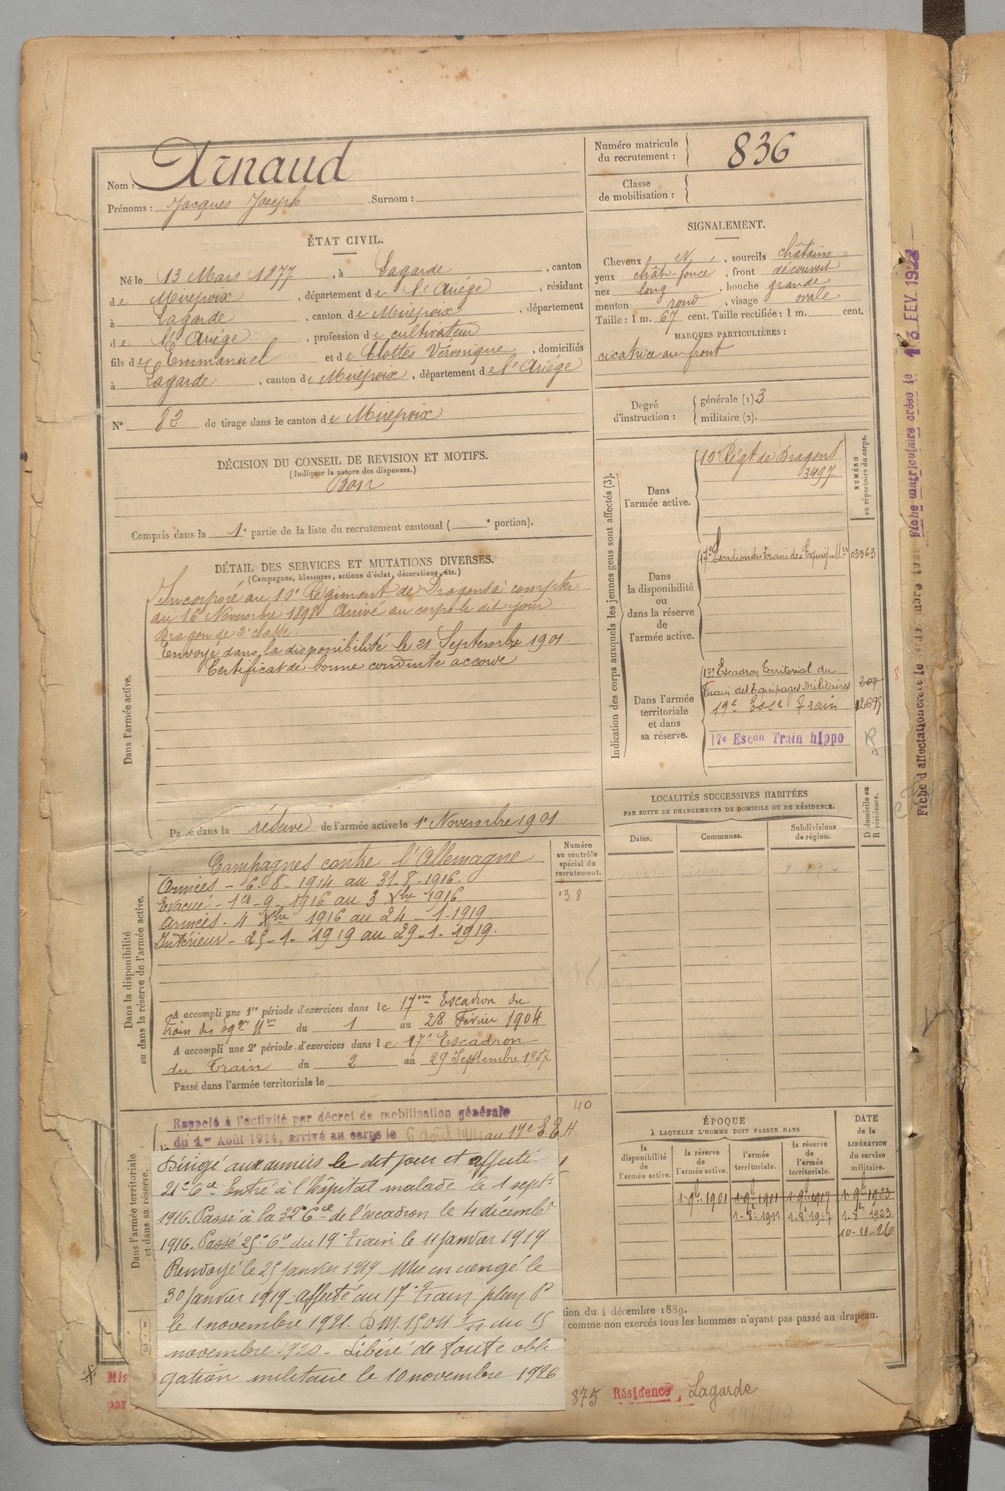 Nom : Arnaud
Prénoms : Jacques Joseph Surnom :
Numéro matricule
du recrutement : 836
Classe
de mobilisation :
ÉTAT CIVIL.
Né le 13 Mars 1877, à Lagarde, canton
de Mirepoix, département de l'Ariége, résidant
à Lagarde, canton de Mirepoix, département
de l'Ariége, profession de cultivateur
fils de Emmanuel et de Clottes Véronique, domiciliés
à Lagarde, canton de Mirepoix, département de l'Ariége
N° 82 de tirage dans le canton de Mirepoix
SIGNALEMENT.
Cheveux N, sourcils châtains
yeux chât. foncé, front découvert
nez long, bouche grande
menton rond, visage ovale
Taille : 1 m. 67 cent. Taille rectifiée : 1 m. cent.
MARQUES PARTICULIÈRES :
cicatrice au front
Degré
d'instruction :
générale (1) 3
militaire (2).
DÉCISION DU CONSEIL DE REVISION ET MOTIFS.
(Indiquer la nature des dispenses.)
Bon
Compris dans la 1e partie de la liste du recrutement cantonal ( e portion).
DÉTAIL DES SERVICES ET MUTATIONS DIVERSES.
(Campagnes, blessures, actions d'éclat, décorations, etc.)
Dans l'armée active.
Incorporé au 10e Régiment de Dragons à compter
du 16 Novembre 1898 Arrivé au corps le dit jour
Dragon de 2e classe.
Envoyé dans la disponibilité le 21 Septembre 1901
Certificat de bonne conduite accordé
Passé dans la réserve de l'armée active le 1er Novembre 1901
Indication des corps auxquels les jeunes gens sont affectés (3).
NUMÉRO
au répertoire du corps.
Dans
l'armée active.
10e Régt de Dragons
3497
Dans
la disponibilité
ou
dans la réserve
de
l'armée active.
17e Escadron du train des Equip. Mres 03363
Dans l'armée
territoriale
et dans
sa réserve.
17e Escadron Territorial du
Train des Equipages Militaires
19e Esce Train
17e Escon Train hippo
LOCALITÉS SUCCESSIVES HABITÉES
PAR SUITE DE CHANGEMENTS DE DOMICILE OU DE RÉSIDENCE.
D domicile ou
R résidence.
Dates.
Communes.
Subdivisions
de région.
Numéro
au contrôle
spécial du
recrutement.
38
Dans la disponibilité
ou dans la réserve de l'armée active.
Campagnes contre l'Allemagne
Armées - 16-8-1914 au 31-8-1916.
Evacué - 1er-9-1916 au 3 Xbre 1916
Armées - 4 Xbre 1916 au 24-1-1919.
Intérieur - 25-1-1919 au 29-1-1919.
A accompli une 1re période d'exercices dans le 17me Escadron du
Train des Eqges Mres du 1 au 28 Février 1904
A accompli une 2e période d'exercices dans le 17e Escadron
du Train du 2 au 29 Septembre 1907
Passé dans l'armée territoriale le
Dans l'armée territoriale
et dans sa réserve.
40
Rappelé à l'activité par décret de mobilisation générale
du 1er Août 1914, arrivé au corps le 6 août 1914 au 17e E.E.M.
Dirigé aux armées le dit jour et affecté
21e Cie Entré à l'hôpital malade le 1 sept
1916. Passé à la 32e Cie de l'escadron le 4 décemb
1916. Passé 25e Cie du 19e train le 11 janvier 1919
Renvoyé le 25 janvier 1919 Mis en congé le
30 janvier 1919 affecté au 17e Train
le 1 novembre 1921. du 15
novembre 1920 - Libéré de toute obli
gation militaire le 10 novembre 1926
ÉPOQUE
À LAQUELLE L'HOMME DOIT PASSER DANS
DATE
de la
LIBÉRATION
du service
militaire.
la
disponibilité
de
l'armée active.
la
réserve
de
l'armée active.
l'armée
territoriale.
la réserve
de
l'armée
territoriale.
1-9bre 1901
1-9bre 1911
1-9bre 1917
1-9bre 1923
10-11-26
tion du 4 décembre 1889.
comme non exercés tous les hommes n'ayant pas passé au drapeau.
Mis
par
875 Résidence Lagarde
Fiche matriculaire créée le 16 FEV. 192
Fiche d'affectation